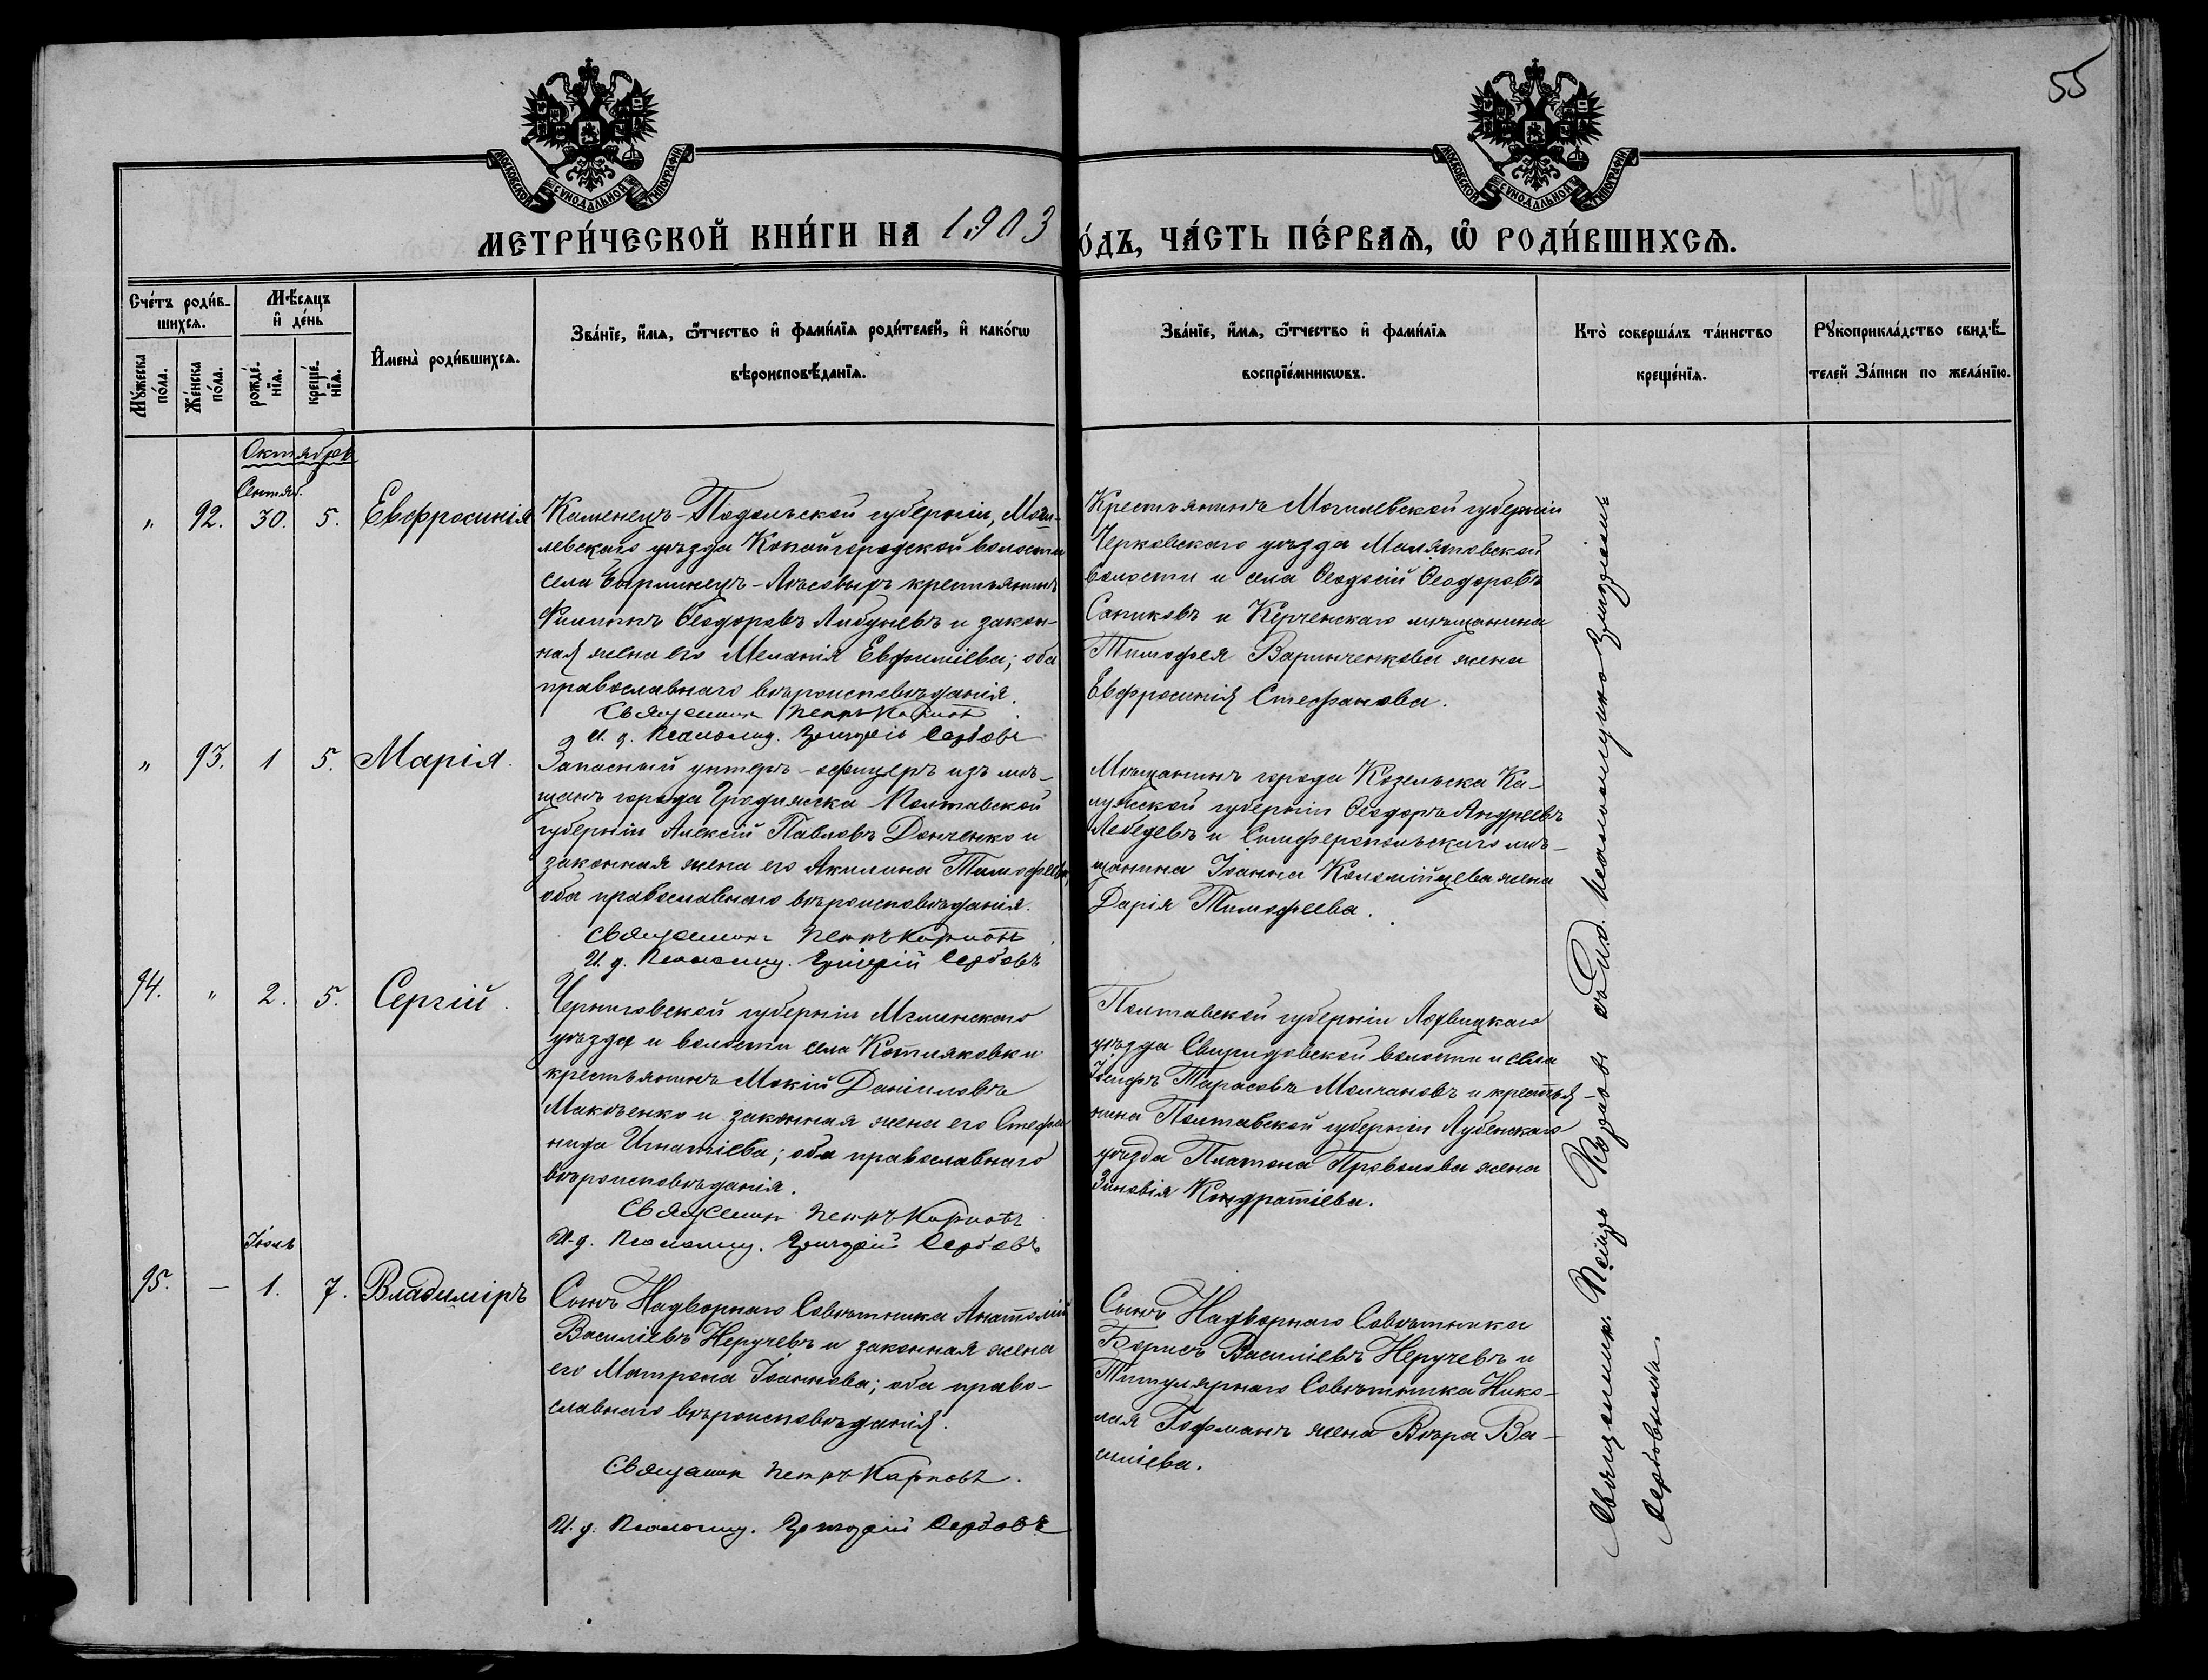 55
МОСКОВСКОЙ СѴНОДАЛЬНОЙ ТИПОГРАФІИ
МОСКОВСКОЙ СѴНОДАЛЬНОЙ ТИПОГРАФІИ
МЕТРИ́ЧЕСКОЙ КНИ́ГИ НА 1903
О́ДЪ, ЧА́СТЬ ПЕ́РВАѦ, Ѽ РОДИ́ВШИХСѦ.
Сче́тъ роди́в-
шихсѧ.
Мѣ́сѧцъ
и҆ де́нь
Мꙋ́жеска
по́ла.
Же́нска
по́ла.
рожде́-
нїѧ.
креще́-
нїѧ.
И҆мена̀ роди́вшихсѧ.
Зва́нїе, и҆́мѧ, ѻ҆́тчество и҆ фами́лїѧ роди́телей, и҆ како́гѡ
вѣроисповѣ́данїѧ.
Зва́нїе, и҆́мѧ, ѻ҆́тчество и҆ фами́лїѧ
воспрїе́мникѡвъ.
Кто̀ соверша́лъ та́инство
креще́нїѧ.
Рꙋкоприкла́дство свидѣ́-
телей За́писи по жела́нїю.
Октябрь
Сентяб.
" 92. 30. 5. Евфросинія
Каменецъ-Подольской губерніи, Моги-
левскаго уѣзда Копайгородской волости
села крестьянинъ
Филиппъ Ѳеодоровъ и закон-
ная жена его Меланія Евфиміева; оба
православнаго вѣроисповѣданія.
Священник Петръ Карповъ
И. д. Псаломщ. Григорій Сербовъ
Крестьянинъ Могилевской губерніи
уѣзда Малятовской
волости и села Ѳеодосій Ѳеодоровъ
Сапиковъ и Керченскаго мѣщанина
Тимофея Варинченкова жена
Евфросинія Стефанова.
" 93. 1 5. Марія.
Запасный унтеръ-офицеръ изъ мѣ-
щанъ города Градижска Полтавской
губерніи Алексій Павловъ Донченко и
законная жена его Акилина Тимофеева,
оба православнаго вѣроисповѣданія.
Священник Петръ Карповъ
И. д. Псаломщ. Григорій Сербовъ
Мѣщанинъ города Козельска Ка-
лужской губерніи Ѳеодоръ Андреевъ
Лебедевъ и Симферопольскаго мѣ-
щанина Іоанна Коломійцева жена
Дарія Тимофеева.
94. " 2. 5. Сергій.
Черниговской губерніи Мглинскаго
уѣзда и волости села Котляковки
крестьянинъ Мокій Даніиловъ
Макѣенко и законная жена его Стефа-
нида Игнатіева; оба православнаго
вѣроисповѣданія.
Священник Петръ Карповъ
И. д. Псаломщ. Григорій Сербовъ
Полтавской губерніи Лохвицкаго
уѣзда Свиридовской волости и села
Іосифъ Тарасовъ Молчановъ и крестья-
нина Полтавской губерніи Лубенскаго
уѣзда Платона жена
Зиновія Кондратіева.
Іюль
95. — 1. 7. Владиміръ
Сынъ Надворнаго Совѣтника Анатолій
Василіевъ Неручевъ и законная жена
его Матрона Іоаннова; оба право-
славнаго вѣроисповѣданія.
Священник Петръ Карповъ.
И. д. Псаломщ. Григорій Сербовъ
Сынъ Надворнаго Совѣтника
Борисъ Василіевъ Неручевъ и
Титулярнаго Совѣтника Нико-
лая Гофманъ жена Вѣра Ва-
силіева.
Священник Петръ Карповъ съ И.д. Псаломщика Григоріемъ
Сербовымъ.